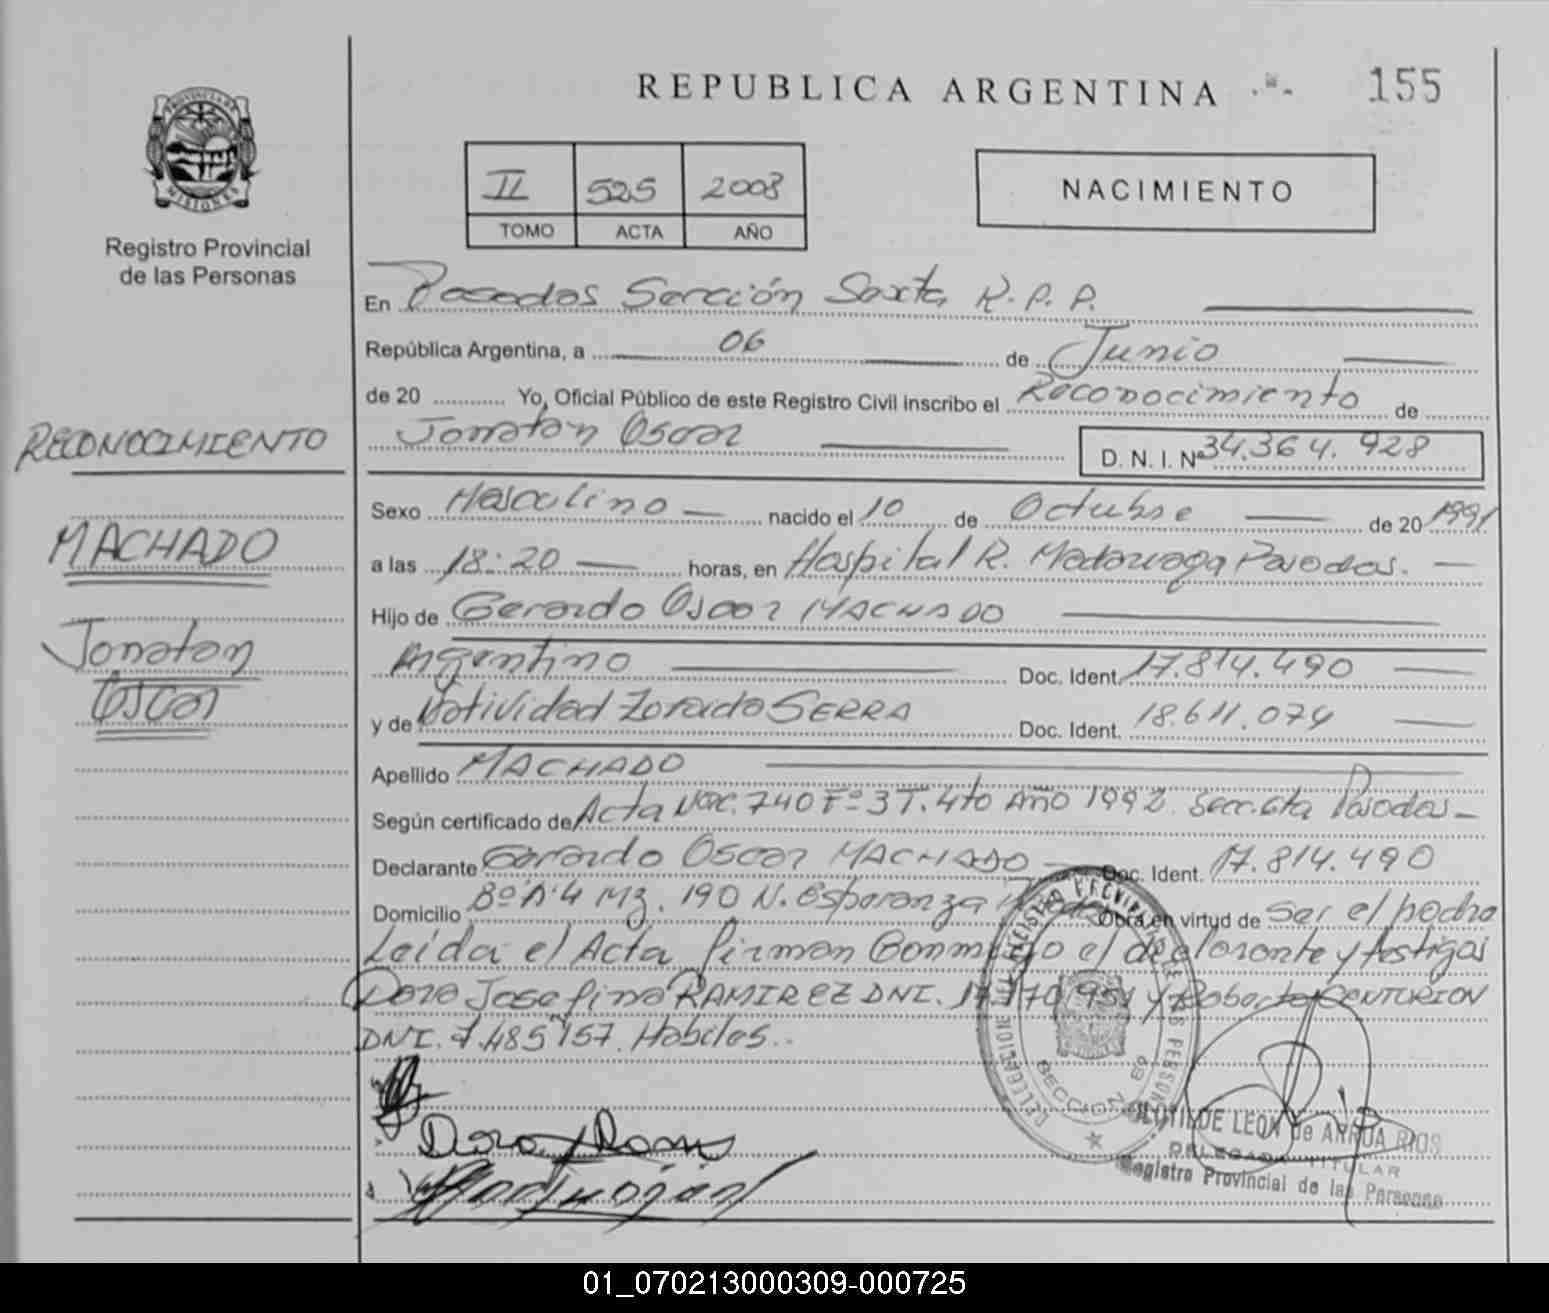 REPUBLICA ARGENTINA
155
PROVINCIA DE MISIONES
Registro Provincial
de las Personas
II 525 2008
TOMO ACTA AÑO
NACIMIENTO
En Posadas Sección Sexta R.P.P.
República Argentina, a 06 de Junio
de 20 Yo, Oficial Público de este Registro Civil inscribo el Reconocimiento de
RECONOCIMIENTO
Jonatan Oscar D. N. I. Nº 34.364.928
Sexo Masculino nacido el 10 de Octubre de 20 1991
MACHADO
a las 18:20 horas, en Hospital R. Madariaga Posadas.
Hijo de Gerardo Oscar MACHADO
Jonatan
Oscar
Argentino Doc. Ident. 17.814.490
y de Natividad Zoraida SERRA Doc. Ident. 18.611.074
Apellido MACHADO
Según certificado de Acta Nº 740 Fº 3 T. 4to Año 1992. Secc. 6ta Posadas
Declarante Gerardo Oscar MACHADO Doc. Ident. 17.814.490
Domicilio Bº A4 Mz. 190 N. Esperanza Obra en virtud de ser el padre
Leída el Acta firman Conmigo el declarante y testigos
Dora Josefina RAMIREZ DNI. y Roberto CENTURION
DNI. 7.485.157. Hábiles.
SECCION 6ª
CLOTILDE LEON de ARRUA RIOS
DELEGADA TITULAR
Registro Provincial de las Personas
01_070213000309-000725